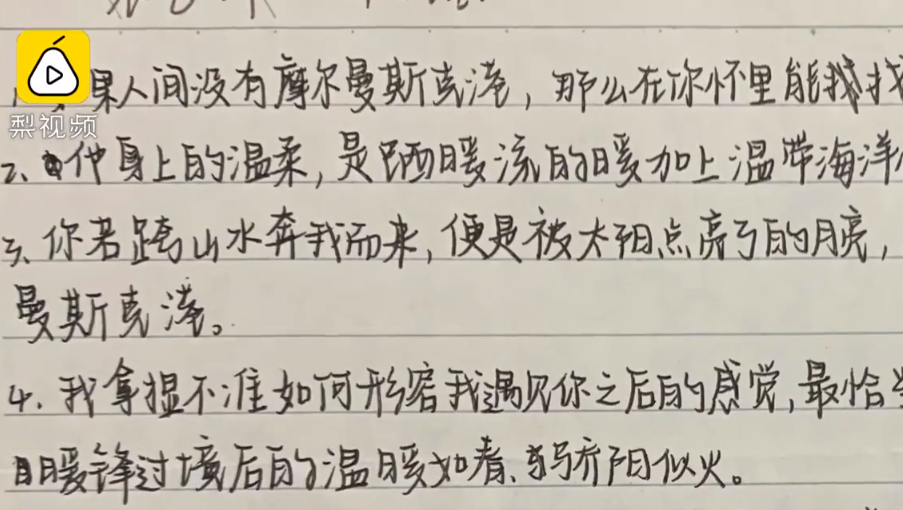 果人间没有摩尔曼斯克港，那么在你怀里能我找
梨视频
2、他身上的温柔，是西暖流的暖加上温带海洋
3、你若跨山水奔我而来，便是被太阳点亮了的月亮，
曼斯克港。
4.我拿捏不准如何形容我遇见你之后的感觉，最恰
暖锋过境后的温暖如春、骄阳似火。